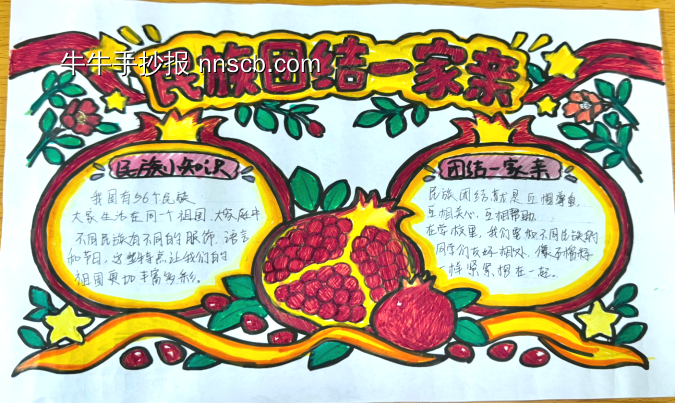 牛牛手抄报 nnscb.com
民族团结一家亲
民族小知识
我国有56个民族
大家生活在同一个祖国,大家庭中
不同民族有不同的服饰、语言
和节日,这些特点让我们的
祖国更加丰富多彩。
团结一家亲
民族团结就是互相尊重,
互相关心,互相帮助。
在学校里,我们要和不同民族的
同学们友好相处,像石榴籽
一样紧紧抱在一起。